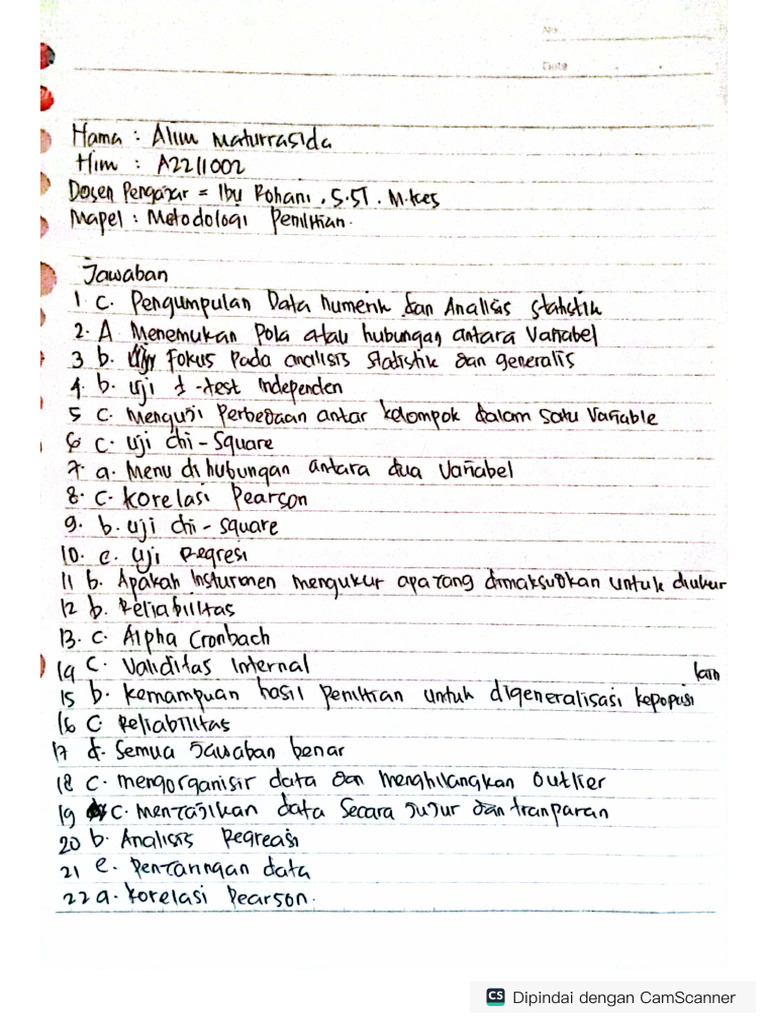 No
Date
Nama : Alim Maturrasida
Nim : A2211002
Dosen Pengajar = Ibu Rohani . S.ST . M.kes
Mapel : Metodologi Penilitian.
Jawaban
1 c. Pengumpulan Data numerik dan Analisis statistik
2. A Menemukan Pola atau hubungan antara Variabel
3 b. Fokus Pada analisis statistik dan generalis
4. b. uji t -test independen
5 c. Menguji Perbedaan antar kelompok dalam satu Variable
6 c. uji chi - Square
7. a. Menu di hubungan antara dua Variabel
8. c. korelasi Pearson
9. b. uji chi - square
10. e. uji Regresi
11 b. Apakah Insturmen mengukur apa yang dimaksudkan untuk diukur
12 b. Reliabilitas
13. c. Alpha Cronbach
14 c. Validitas Internal
15 b. kemampuan hasil penilitian untuk digeneralisasi kepopusi lain
16 C Reliabilitas
17 d. Semua jawaban benar
18 c. mengorganisir data dan menghilangkan outlier
19 c. menyajikan data secara jujur dan tranparan
20 b. Analisis Regreasi
21 e. penyaringan data
22 a. korelasi Pearson.
CS Dipindai dengan CamScanner